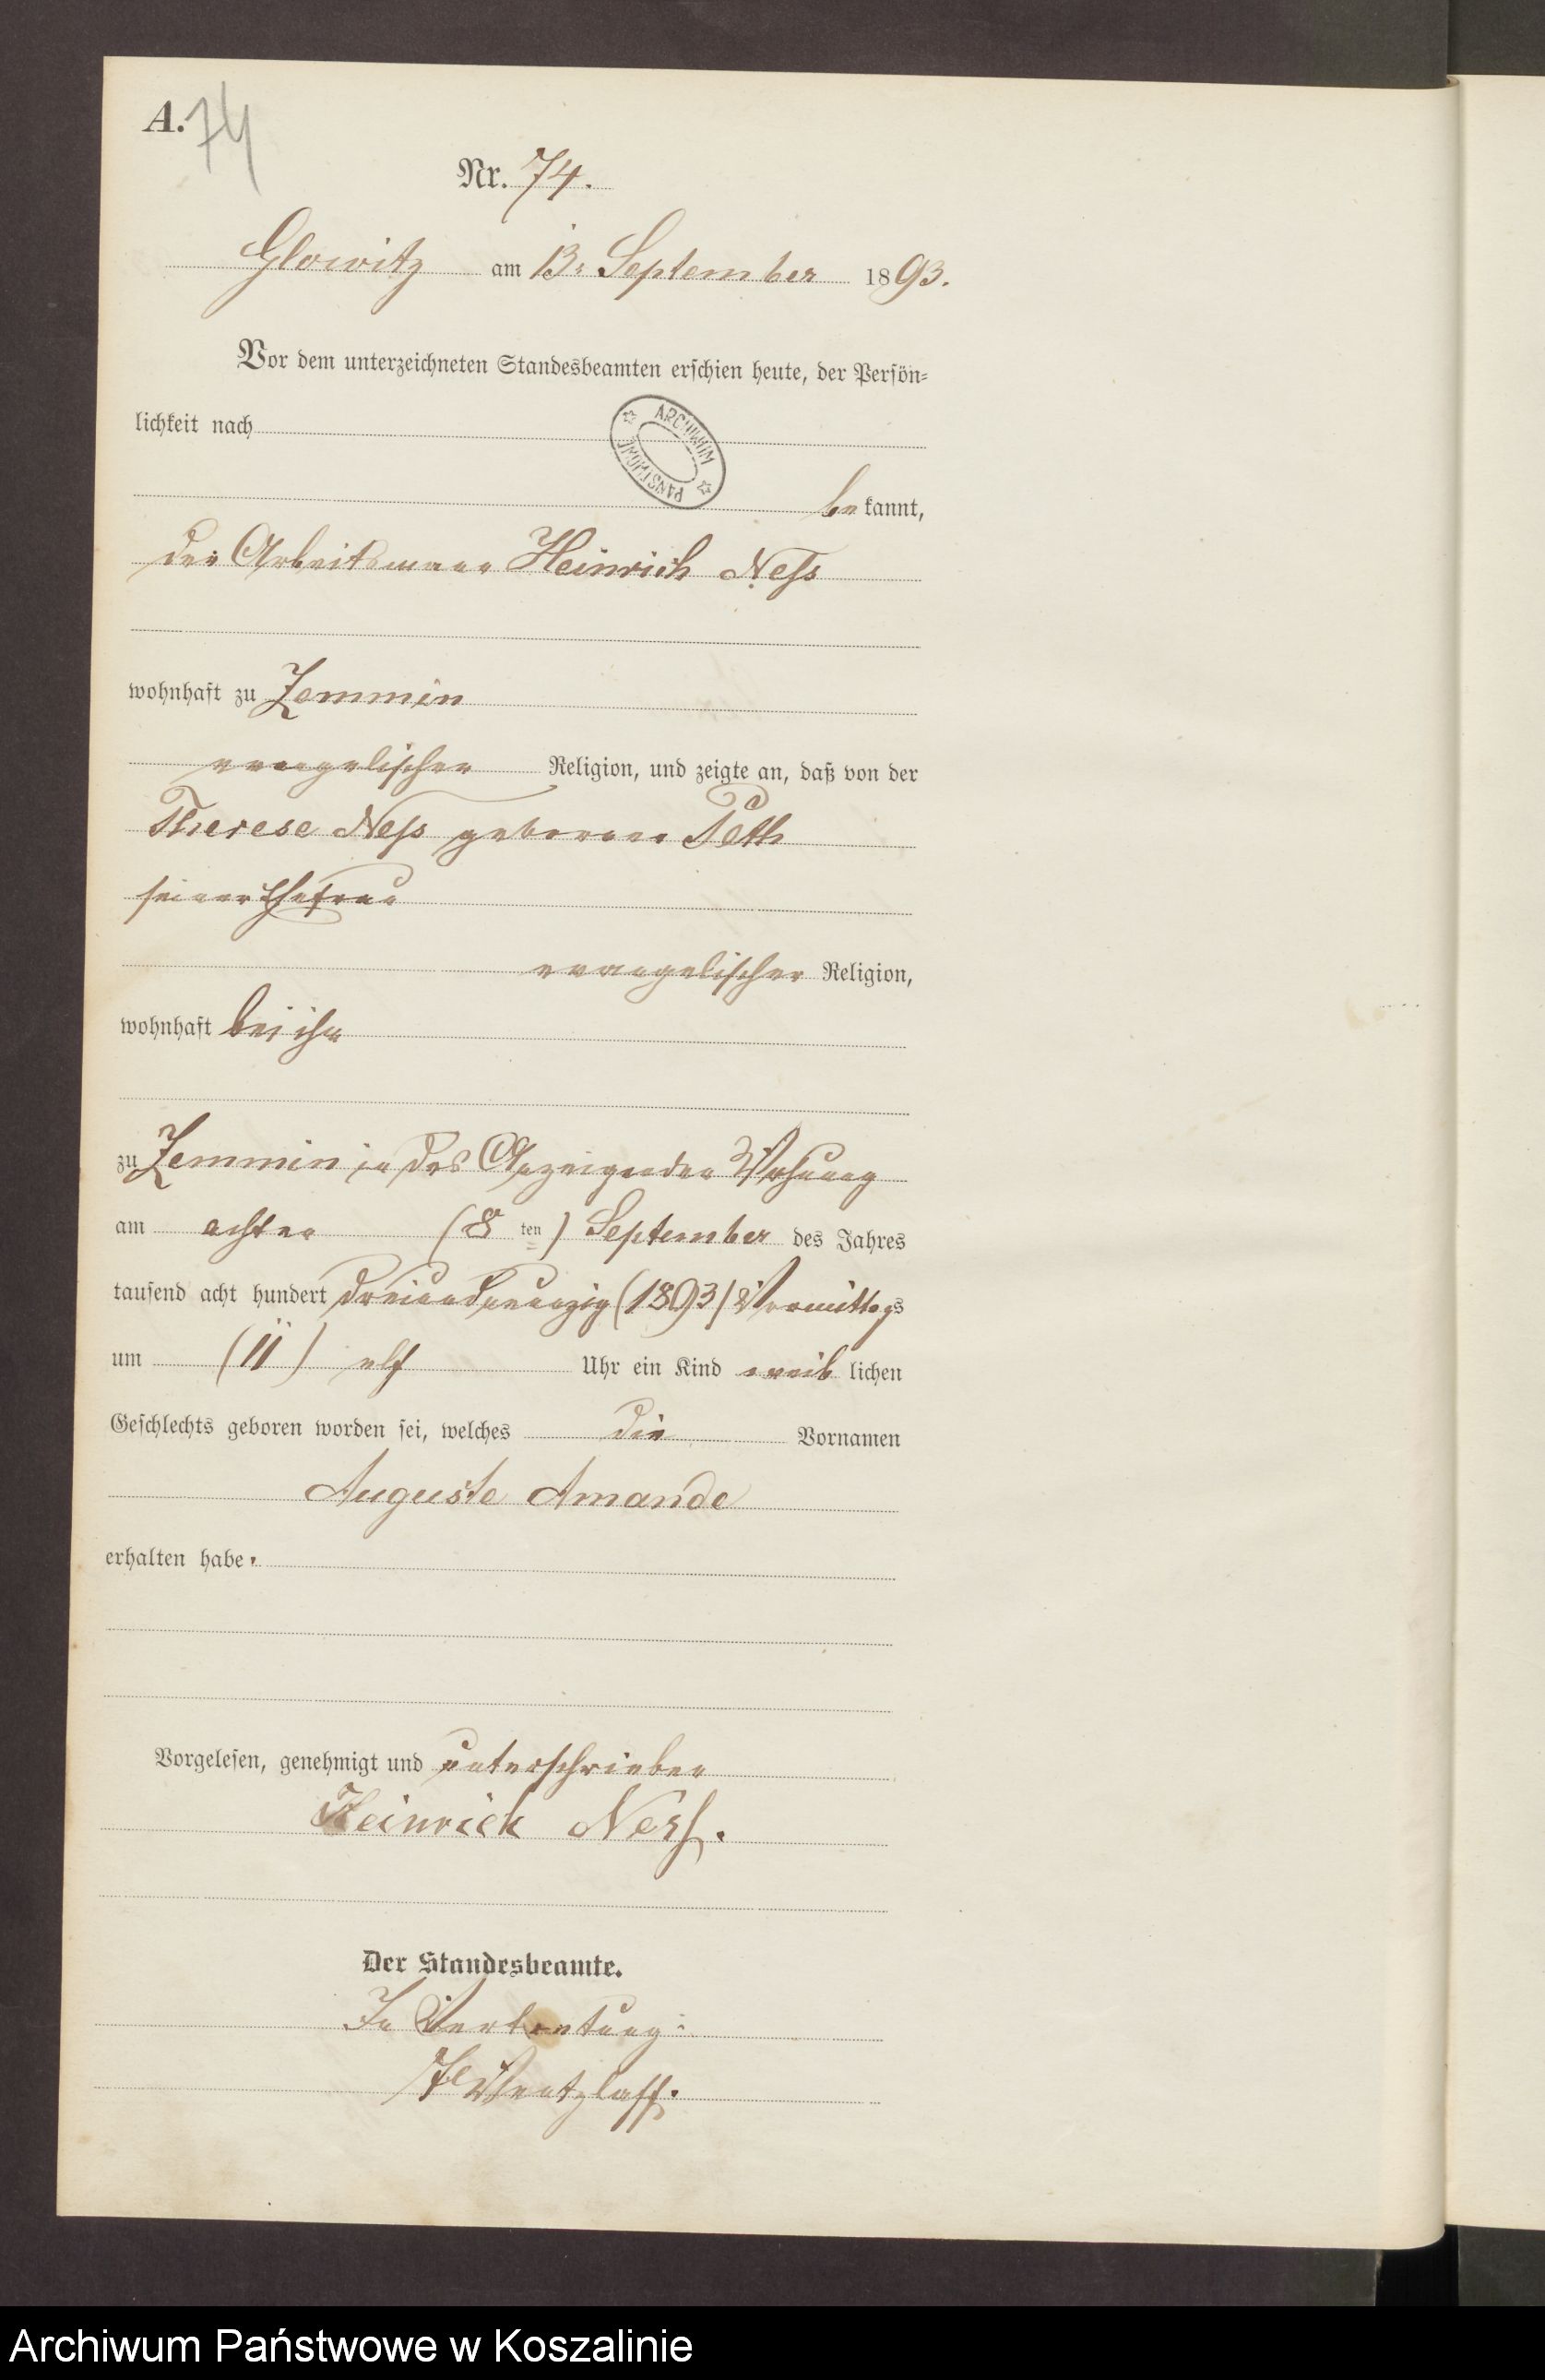 A. 74
Nr. 74.
Glowitz am 13: September 1893.
Vor dem unterzeichneten Standesbeamten erschien heute, der Persön=
lichkeit nach
ARCHIWUM PAŃSTWOWE
bekannt,
der Arbeitsmann Heinrich Ness
wohnhaft zu Zemmin
evangelischer Religion, und zeigte an, daß von der
Therese Ness geborene Peth
seiner Ehefrau
evangelischer Religion,
wohnhaft bei ihm
zu Zemmin in des Anzeigenden Wohnung
am achten (8 ten) September des Jahres
tausend acht hundert dreiundneunzig (1893) Vormittags
um (11) elf Uhr ein Kind weiblichen
Geschlechts geboren worden sei, welches die Vornamen
Auguste Amande
erhalten habe.
Vorgelesen, genehmigt und unterschrieben
Heinrich Ness.
Der Standesbeamte.
In Vertretung:
Wentzlaff.
Archiwum Państwowe w Koszalinie